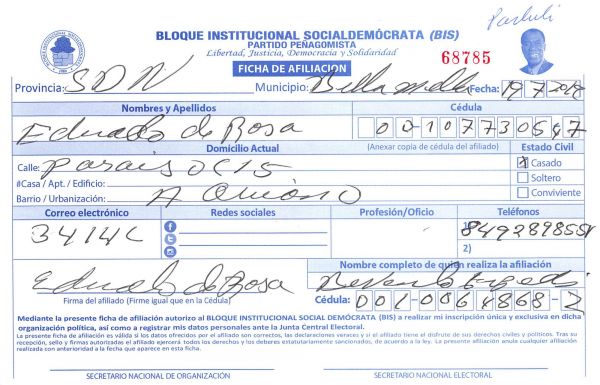 BLOQUE INSTITUCIONAL SOCIALDEMÓCRATA (BIS)
PARTIDO PEÑAGOMISTA
Libertad, Justicia, Democracia y Solidaridad
68785
FICHA DE AFILIACIÓN
Provincia: SDN Municipio: Fecha: 19 7
Nombres y Apellidos Cédula
Eduardo de Rosa
Domicilio Actual (Anexar copia de cédula del afiliado) Estado Civil
Calle: X Casado
#Casa / Apt. / Edificio: Soltero
Barrio / Urbanización: Conviviente
Correo electrónico Redes sociales Profesión/Oficio Teléfonos
34141 1) 8492898551
2)
Nombre completo de quien realiza la afiliación
Eduardo de Rosa
Firma del afiliado (Firme igual que en la Cédula) Cédula: 001-0064868-2
Mediante la presente ficha de afiliación autorizo al BLOQUE INSTITUCIONAL SOCIAL DEMÓCRATA (BIS) a realizar mi inscripción única y exclusiva en dicha
organización política, así como a registrar mis datos personales ante la Junta Central Electoral.
La presente ficha de afiliación es válida si los datos ofrecidos por el afiliado son correctos, las declaraciones veraces y si el afiliado tiene el disfrute de sus derechos civiles y políticos. Tras su
recepción, sello y firmas autorizadas el afiliado ejercerá todos los derechos y los deberes estatutariamente sancionados, de acuerdo a la ley. La presente afiliación anula cualquier afiliación
realizada con anterioridad a la fecha que aparece en esta ficha.
SECRETARIO NACIONAL DE ORGANIZACIÓN SECRETARIO NACIONAL ELECTORAL